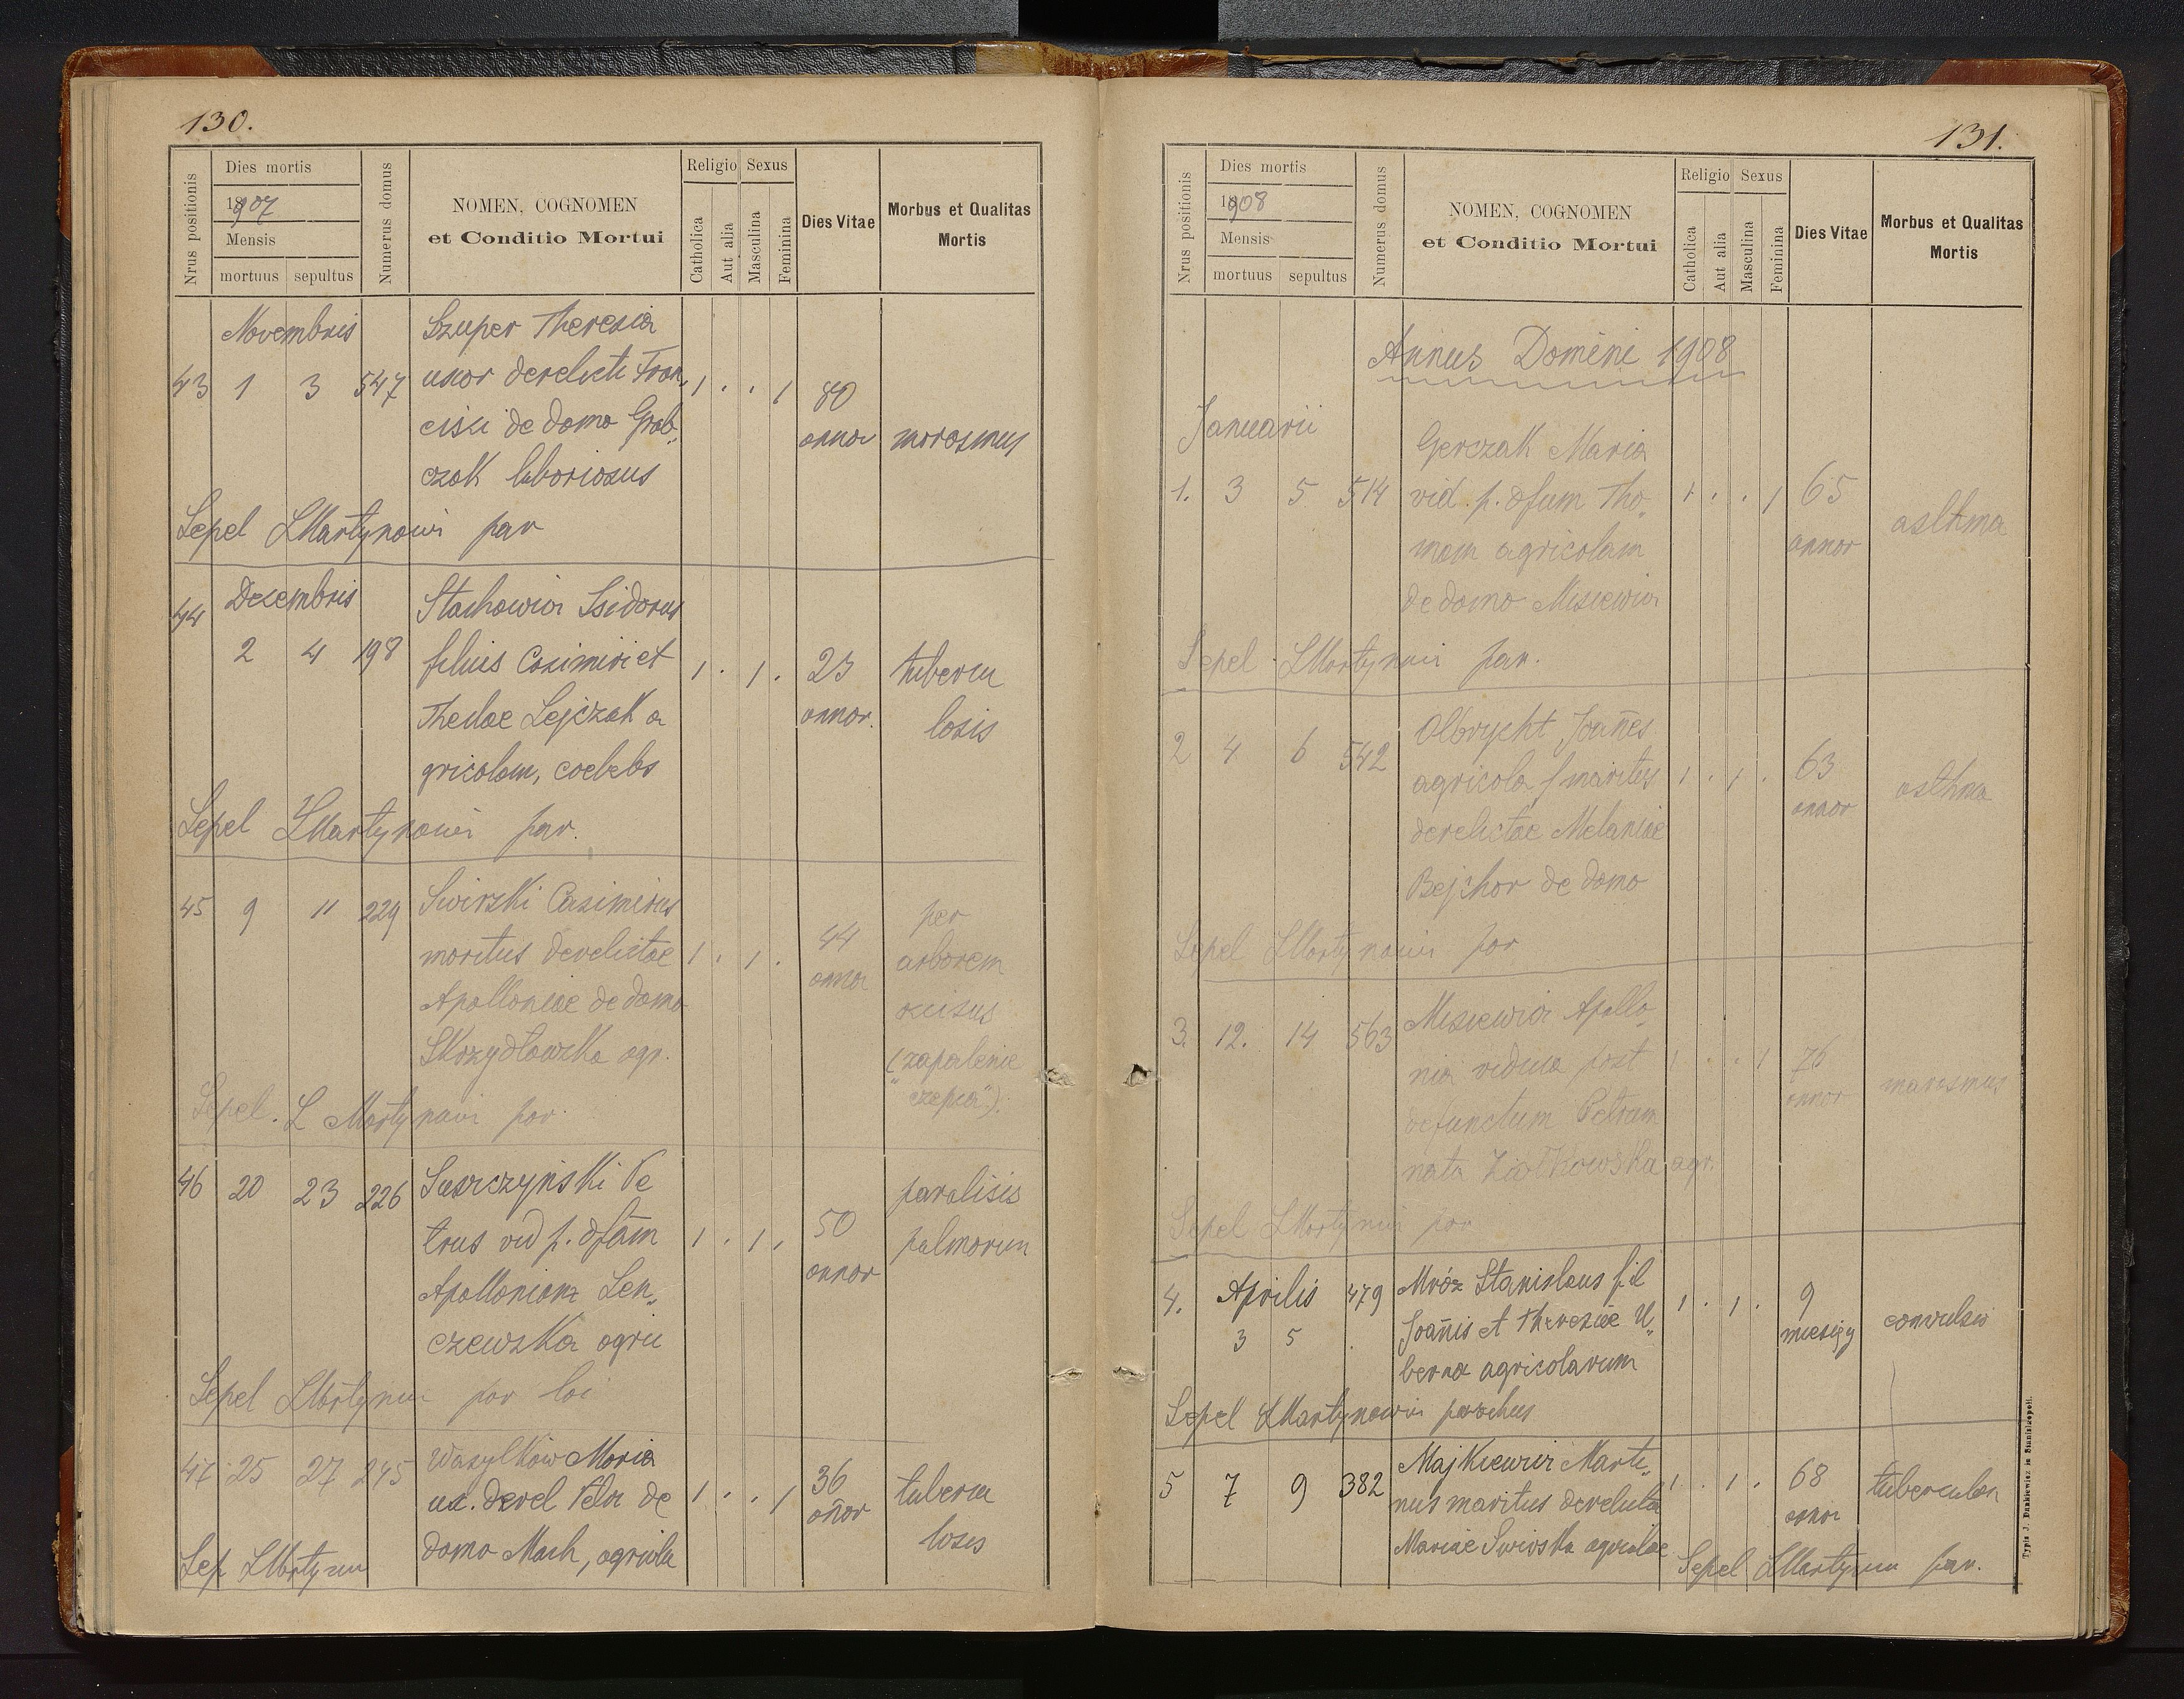 130.
Nrus positionis
Dies mortis
1907
Mensis
mortuus sepultus
Numerus domus
NOMEN, COGNOMEN
et Conditio Mortui
Religio
Catholica
Aut alia
Sexus
Masculina
Feminina
Dies Vitae
Morbus et Qualitas
Mortis
Novembris
Szuper Theresia
43 1 3 547 uxor derelicti Fran„ 1 . . 1 80
cisci de domo Grab„ annor marasmus
czak laboriosus
Sepel LMartynowicz par
Decembris
44 Stachowicz Isidorus
2 4 198 filius Casimiri et 1 . 1 . 23 tubercu
Theclae Lejczak a annor. losis
gricolam, coelebs
Sepel LMartynowicz par.
45 9 11 229 Swirski Casimirus per
maritus derelictae 1 . 1 . 44 arborem
Apolloniae de domo annor occisus
Skrzydłowska agr. (zapalenie
"czepca").
Sepel. L Martynowicz par.
46 20 23 226 Suszczyński Pe paralisis
trus vid p. dfam 1 . 1 . 50 pulmorum
Apolloniam Len„ annor
czewska agric
Sepel LMartynowicz par loci
47 25 27 245 Wasylków Maria 36
ux. derel Petri de 1 . . 1 añor tubercu
domo Mach, agricola losis
Sep LMartynow
131.
Nrus positionis
Dies mortis
1908
Mensis
mortuus sepultus
Numerus domus
NOMEN, COGNOMEN
et Conditio Mortui
Religio
Catholica
Aut alia
Sexus
Masculina
Feminina
Dies Vitae
Morbus et Qualitas
Mortis
Annus Domini 1908
Januarii
Gerczak Maria
1. 3 5 514 vid. p. dfum Tho„ 1 . . 1 65 asthma
mam agricolam annor
de domo Misiewicz
Sepel LMartynowicz par.
Olbrycht Joañes
2 4 6 542 agricola / maritus 1 . 1 . 63 asthma
derelictae Melaniae annor
Bejchor de domo
Sepel LMartynowicz par
3. 12. 14 563 Misiewicz Apollo„
nia vidua post 1 . . 1 76 marasmus
defunctum Petrum annor
nata Ziołkowska agr.
Sepel LMartynowicz par
4. Aprilis 479 Mróz Stanislaus fil 1 . 1 . 9
3 5 Joañis et Theresiae U„ miesięcy convulsio
berna agricolarum
Sepel LMartynowicz parochus
Majkiewicz Marti„
5 7 9 382 nus maritus derelicta 1 . 1 . 68 tuberculos
Mariae Swirska agricolae annor
Sepel LMartynow par.
Typis J. Dankiewicz in Stanislaopoli.